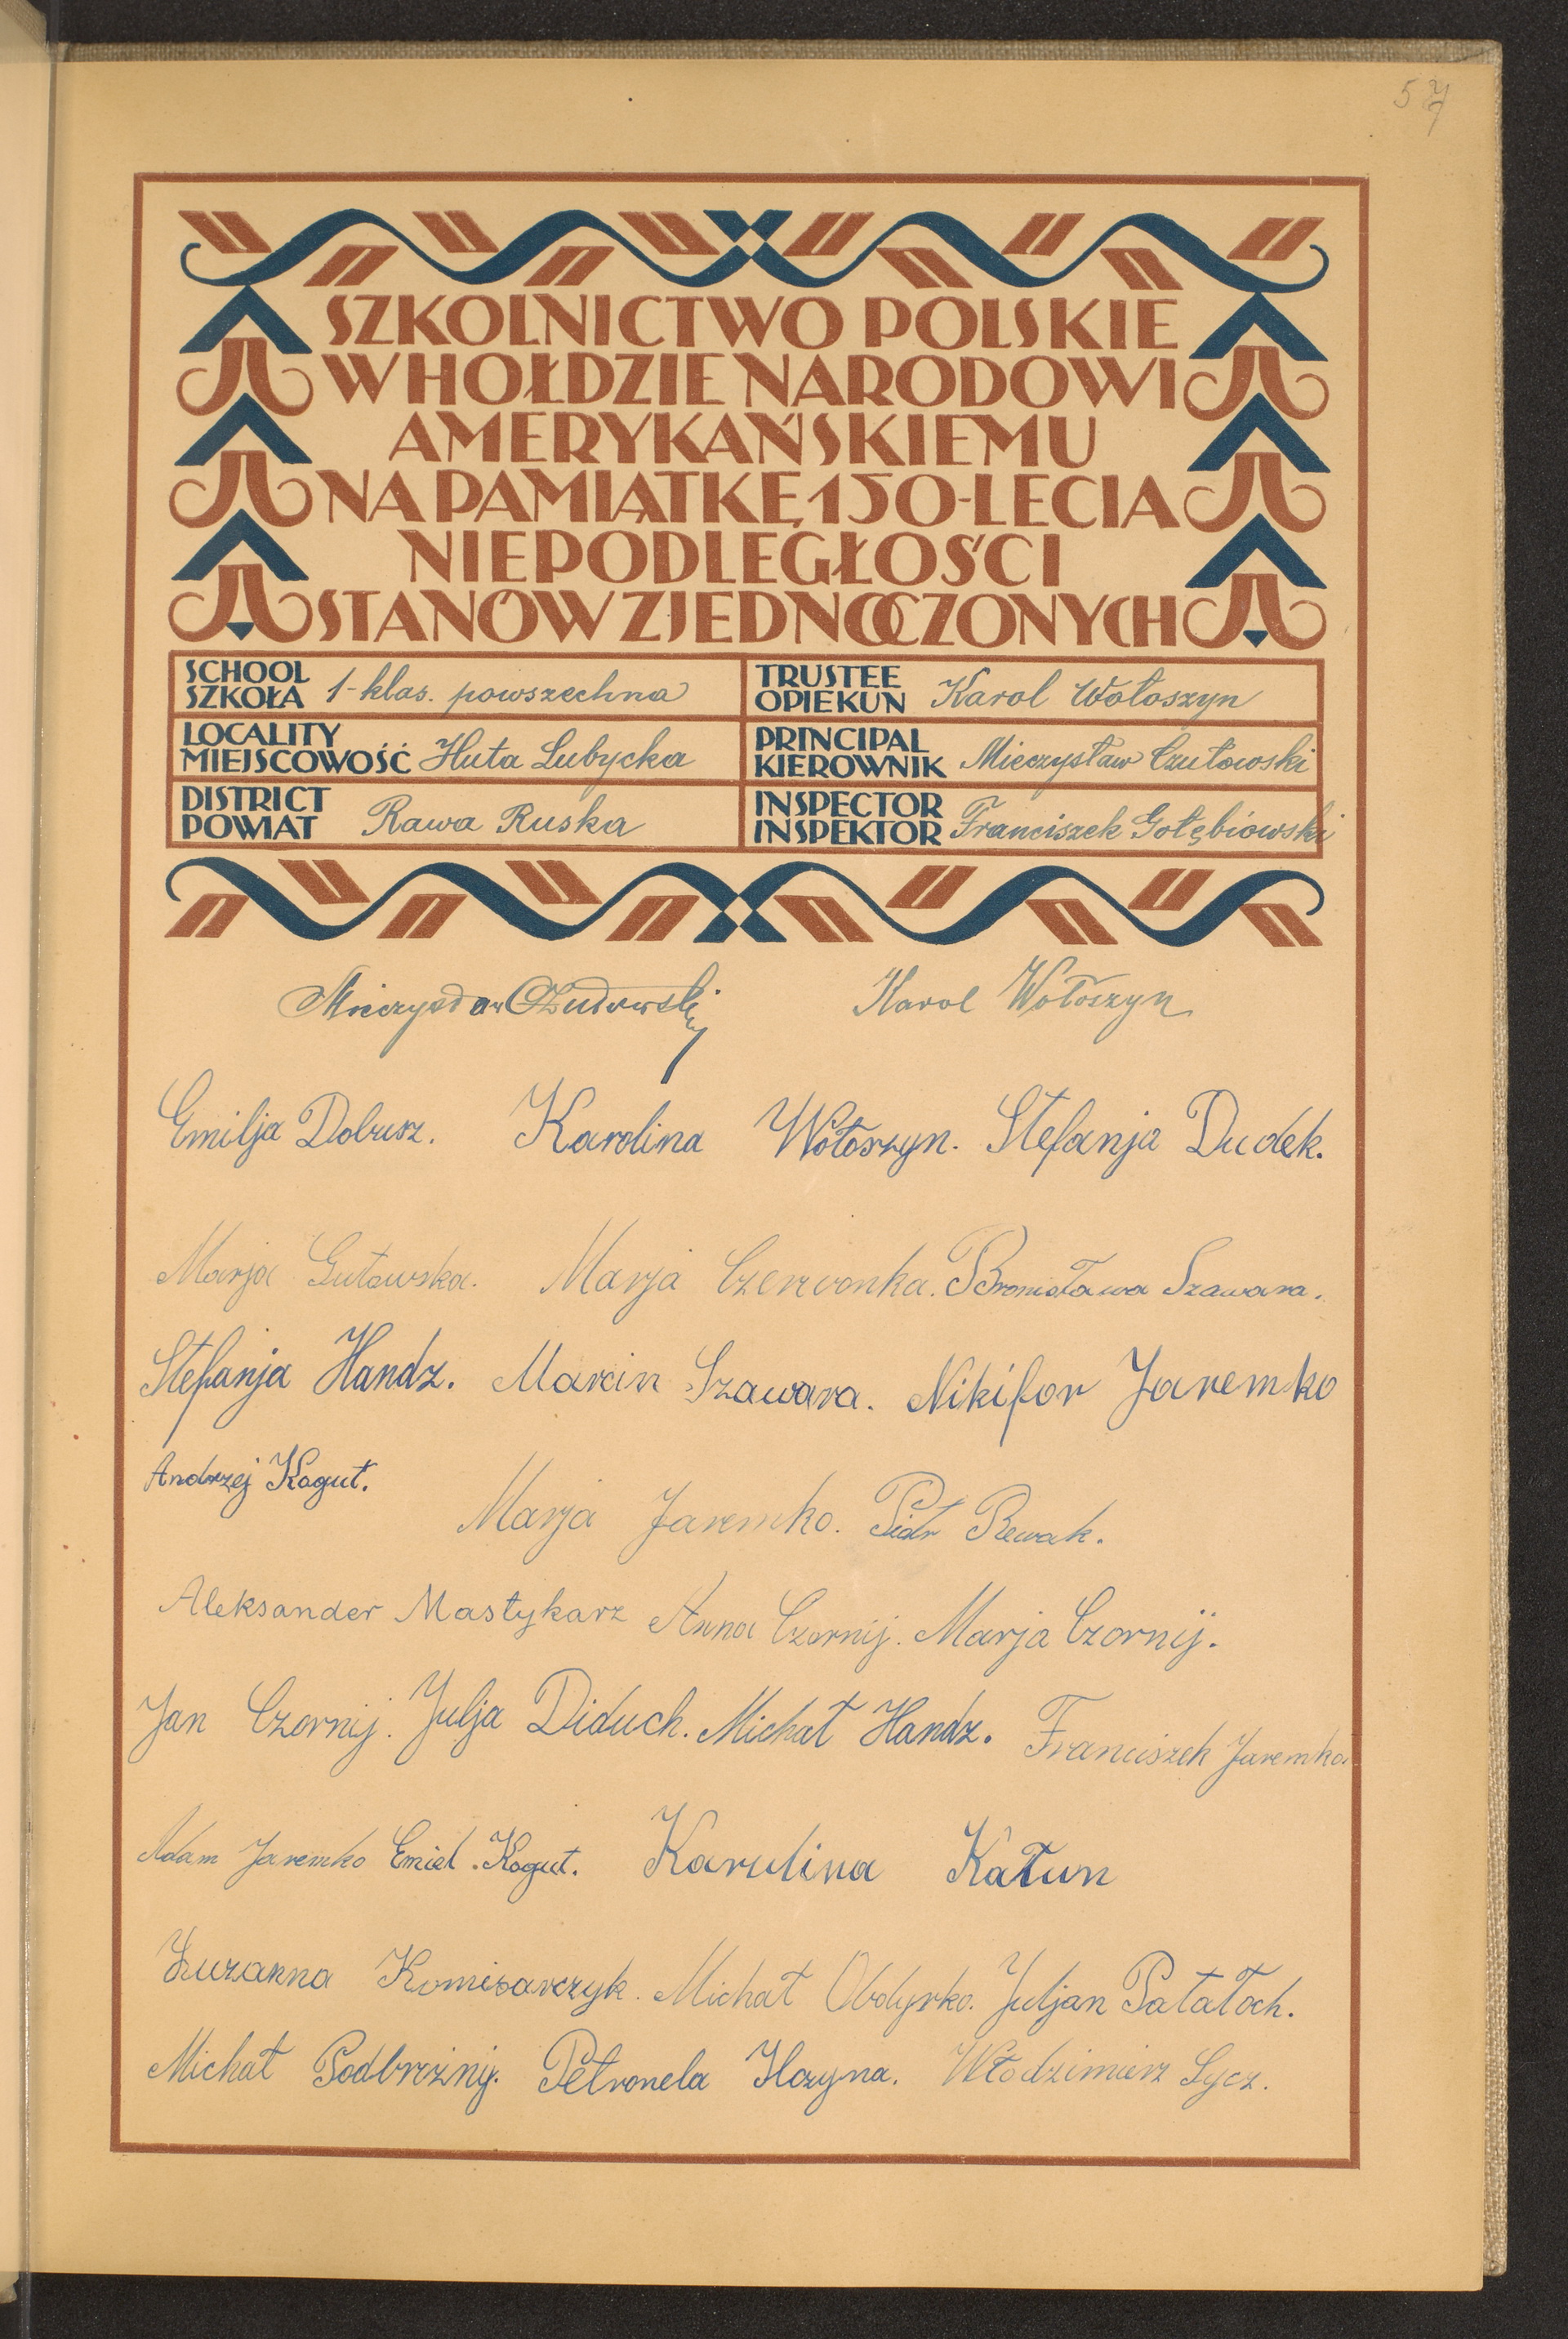 57
SZKOLNICTWO POLSKIE
W HOŁDZIE NARODOWI
AMERYKAŃSKIEMU
NA PAMIĄTKĘ 150-LECIA
NIEPODLEGŁOŚCI
STANÓW ZJEDNOCZONYCH
SCHOOL
SZKOŁA 1-klas. powszechna
TRUSTEE
OPIEKUN Karol Wołoszyn
LOCALITY
MIEJSCOWOŚĆ Huta Lubycka
PRINCIPAL
KIEROWNIK Mieczysław Czułowski
DISTRICT
POWIAT Rawa Ruska
INSPECTOR
INSPEKTOR Franciszek Gołębiowski
Mieczysław Czułowski Karol Wołoszyn
Emilja Dobusz. Karolina Wołoszyn. Stefanja Dudek.
Marja Gutowska. Marja Czerwonka. Bronisława Szawara.
Stefanja Handz. Marcin Szawara. Nikifor Jaremko
Andrzej Kogut.
Marja Jaremko. Piotr Rewak.
Aleksander Mastykarz Anna Czornij. Marja Czornij.
Jan Czornij. Julja Diduch. Michał Handz. Franciszek Jaremko.
Adam Jaremko Emiel Kogut. Karolina Kałun
Zuzanna Komisarczyk. Michał Obdyrko. Juljan Patałoch.
Michał Podbrożnij. Petronela Hozyna. Włodzimierz Sycz.